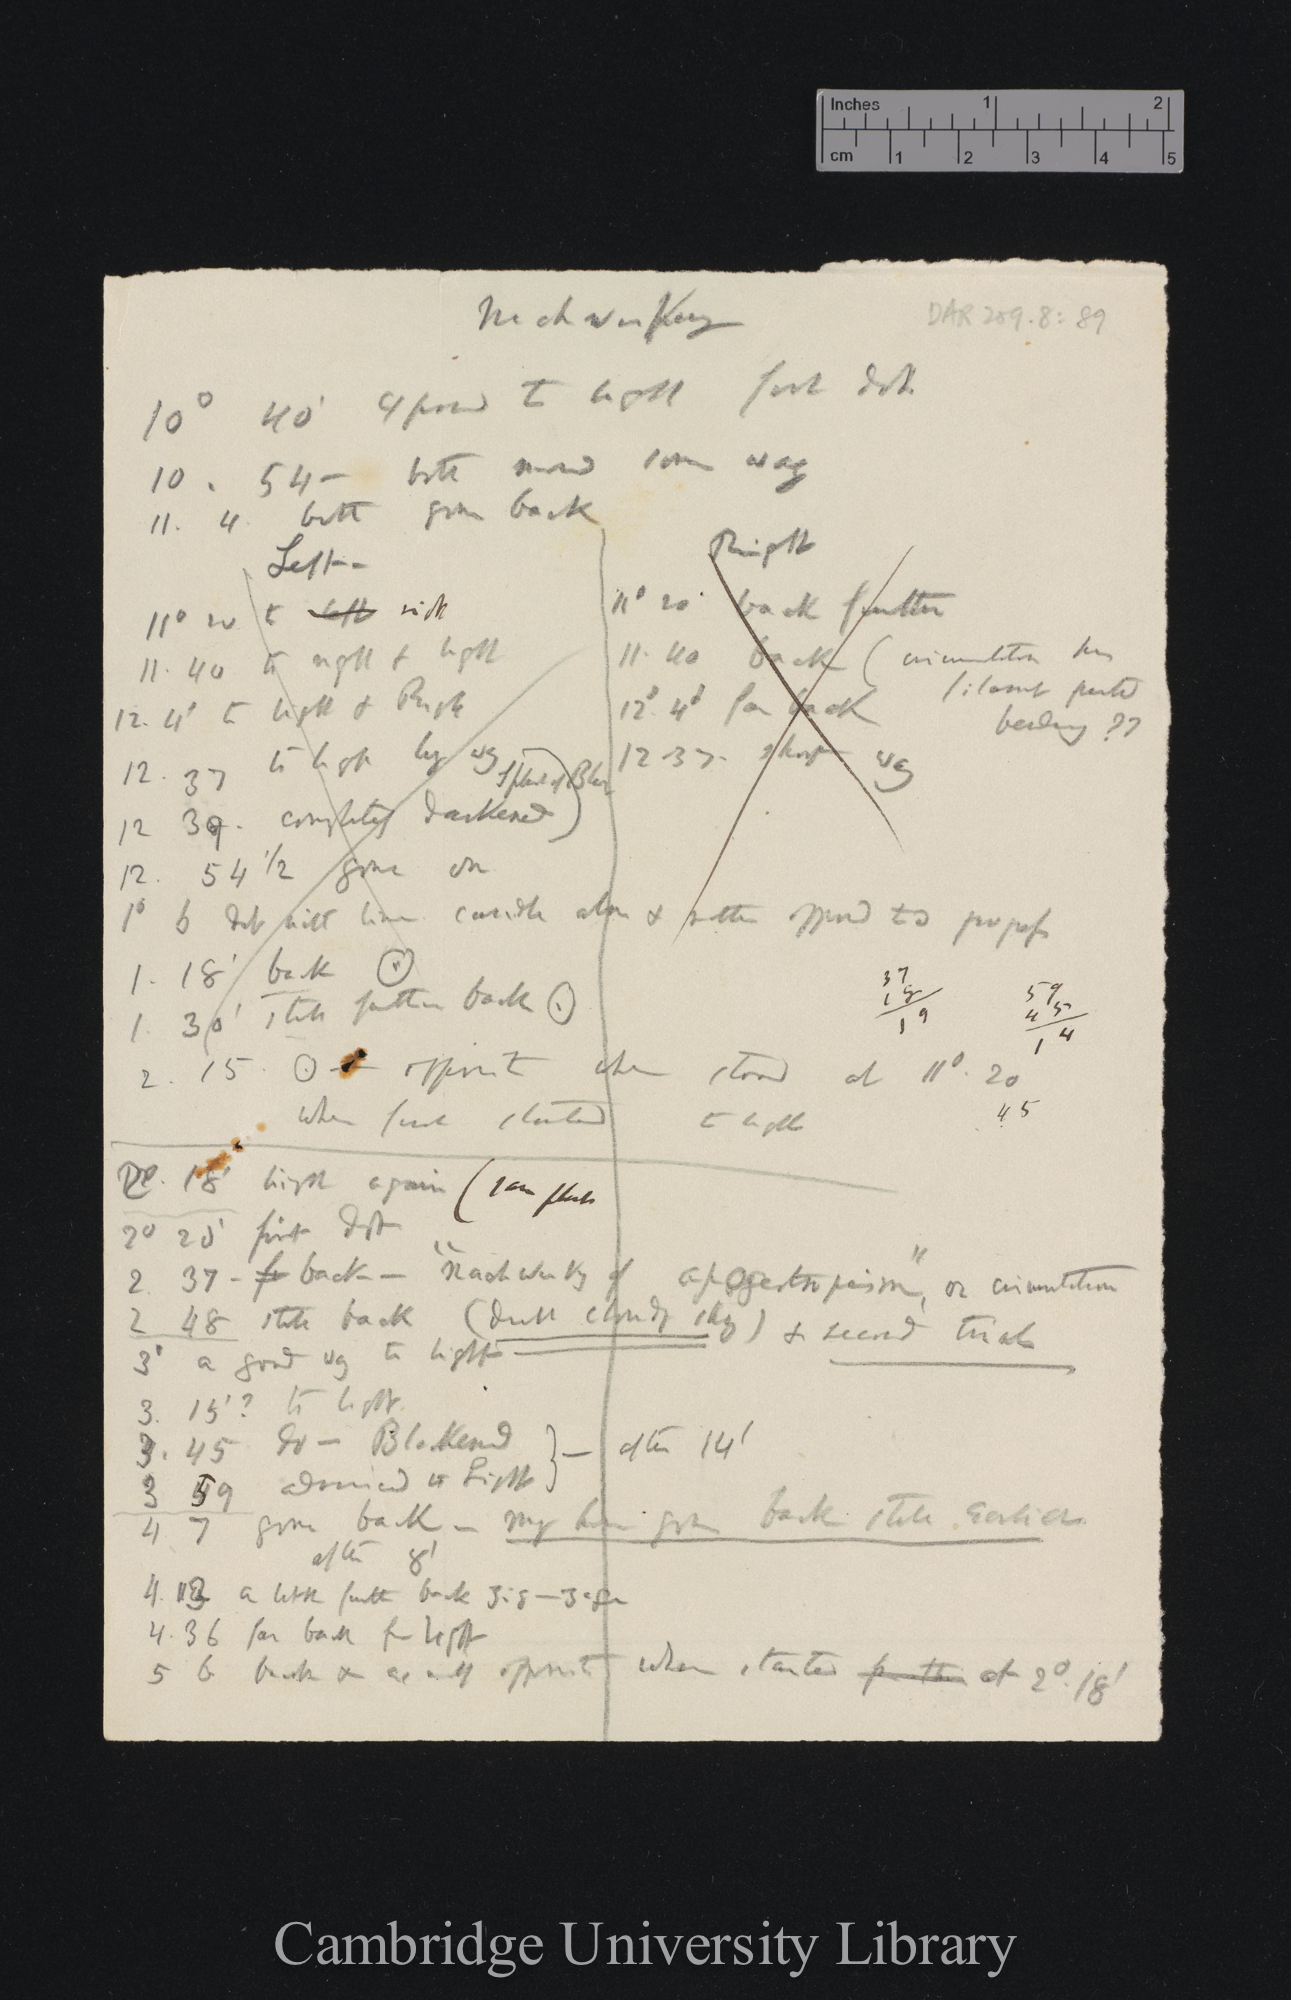 Inches 1 2
cm 1 2 3 4 5
Nachwirkung
DAR 209.8: 89
10° 40' exposed to light first dot
10. 54 — both moved some way
11. 4 both gone back
Left —
11° 20 to left side
11. 40 to right & light
12. 4' to light & Right
12. 37 to light long way
12 39. completely darkened)
12. 54 1/2 gone on
Right
11° 20' back further
11. 40 back (circumnutation has
filament perhaps
bending ??
12° 4' far back
12. 37. short way
1° 6 dot with line outside also & rather opposed to
1. 18' back
1. 30' still further back
2. 15. opposite when stood at 11°. 20
when first started to light
37
18
19
59
45
14
45
2°. 18' light again (same plants
2° 25' first dot
2. 37 — back — "Nachwirkung of apogeotropism", or circumnutation
2 48 still back (dull cloudy sky) & second trial
3° a good way to light
3. 15'? to light.
3. 45 do — Blackened } — after 14'
3 59 advanced to Light
4 7 gone back — may have gone back still earlier
after 8'
4. 13 a little further back zig-zag
4. 36 far back from light
5 6 back & as well opposite when started at 2°. 18'
Cambridge University Library